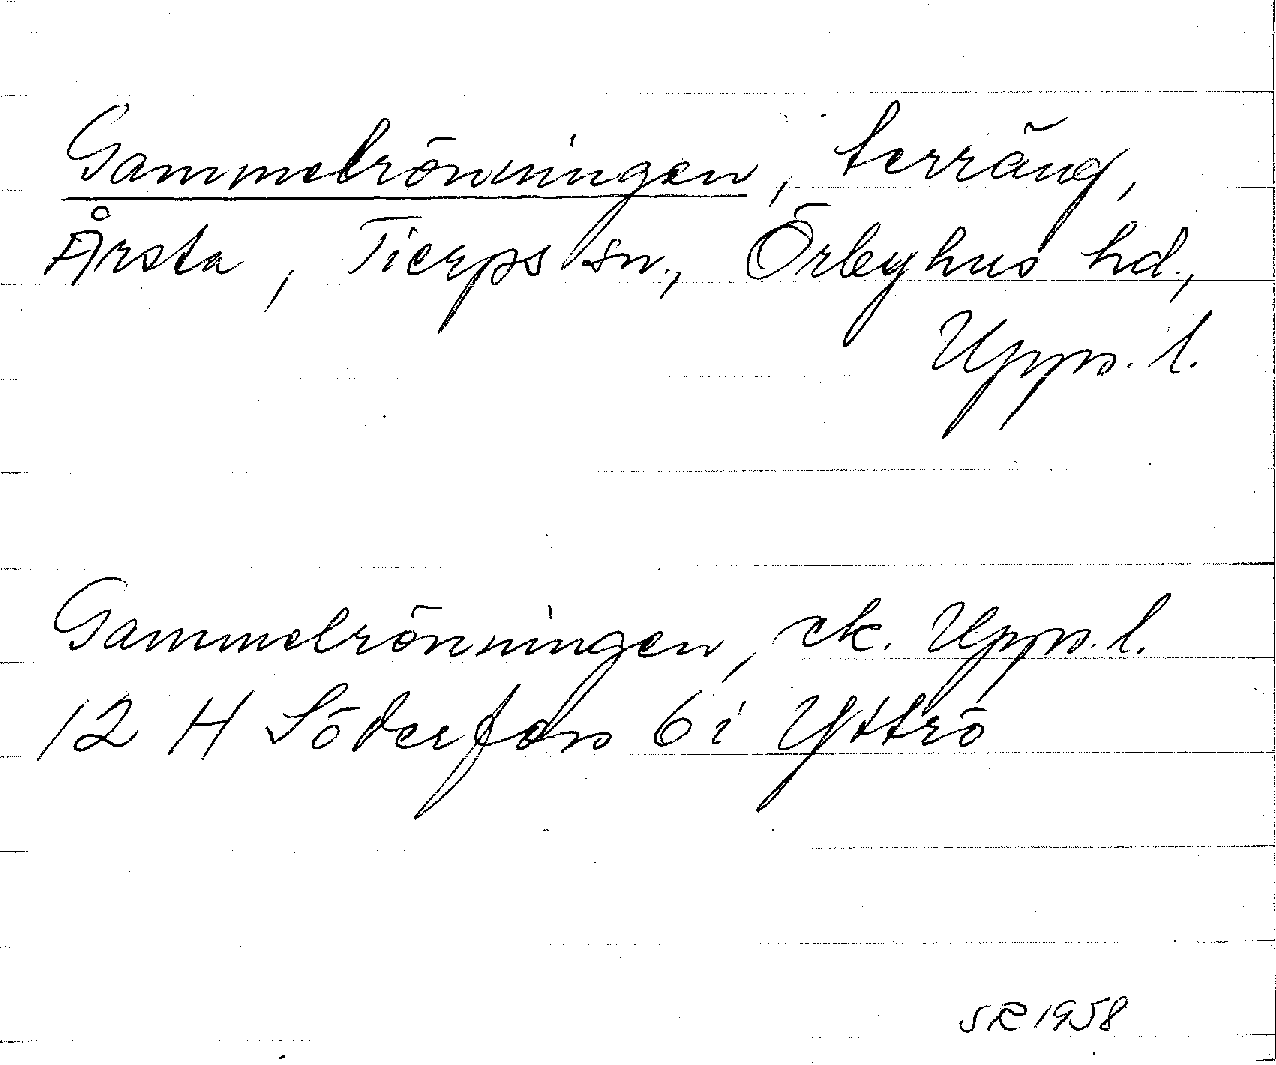 Gammelrönningen, terräng,
Årsta, Tierps sn., Örbyhus hd.,
Upps. l.
Gammelrönningen, ek. Upps. l.
12 H Söderfors 6 i Yttrö
SR 1958